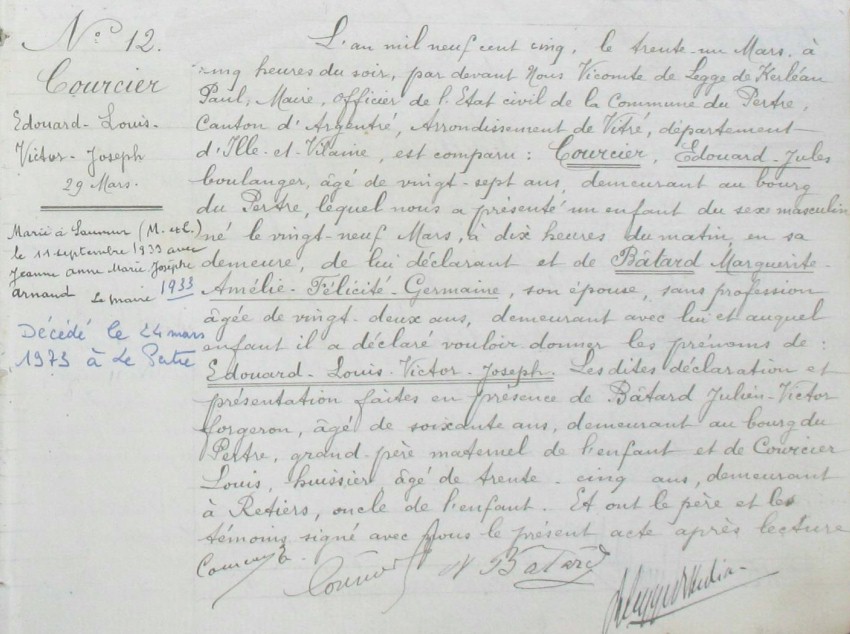 N° 12.
Courcier
Edouard-Louis-
Victor-Joseph
29 Mars.
Marié à Saumur (M.-et-L.)
le 11 septembre 1933 avec
Jeanne Anne Marie Josèphe
Arnaud Le Maire 1933
Décédé le 24 mars
1973 à Le Pertre
L'an mil neuf cent cinq, le trente-un Mars, à
cinq heures du soir, par devant Nous Vicomte de Legge de Kerléan
Paul, Maire, Officier de l'Etat civil de la Commune du Pertre,
Canton d'Argentré, Arrondissement de Vitré, département
d'Ille-et-Vilaine, est comparu : Courcier, Edouard-Jules
boulanger, âgé de vingt-sept ans, demeurant au bourg
du Pertre, lequel nous a présenté un enfant du sexe masculin
né le vingt-neuf Mars, à dix heures du matin, en sa
demeure, de lui déclarant et de Bâtard Marguerite-
Amélie-Félicité-Germaine, son épouse, sans profession
âgée de vingt-deux ans, demeurant avec lui et auquel
enfant il a déclaré vouloir donner les prénoms de :
Edouard-Louis-Victor-Joseph. Les dites déclaration et
présentation faites en présence de Bâtard Julien-Victor
forgeron, âgé de soixante ans, demeurant au bourg du
Pertre, grand-père maternel de l'enfant et de Courcier
Louis, huissier, âgé de trente-cinq ans, demeurant
à Retiers, oncle de l'enfant. Et ont le père et les
témoins signé avec Nous le présent acte après lecture
Courcier Bâtard